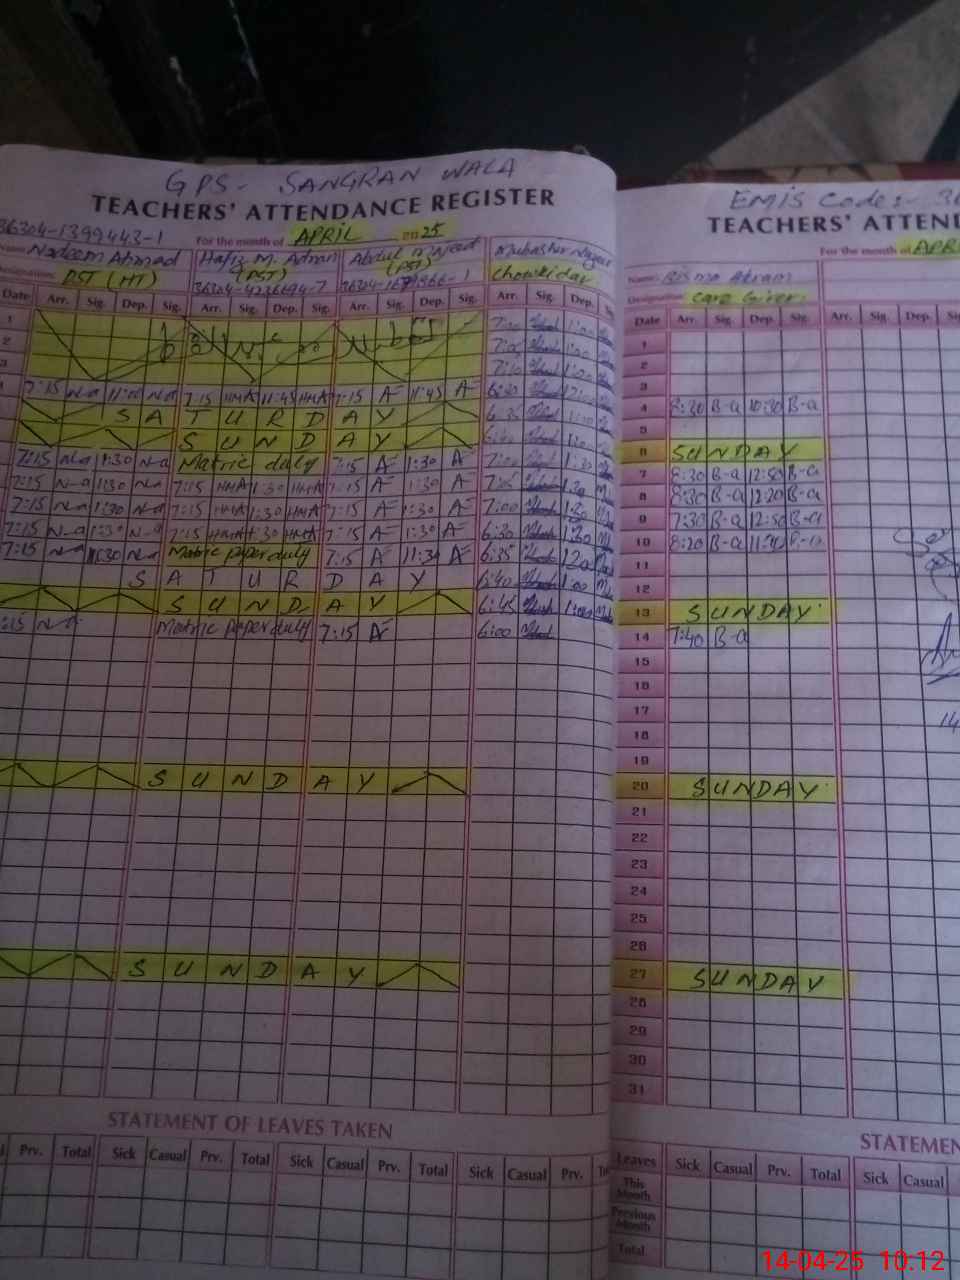 GPS- SANGRAN WALA
TEACHERS' ATTENDANCE REGISTER
36304-1399443-1 For the month of APRIL 2025
Name: Nadeem Ahmad Hafiz M. Adnan Abdul Majeed Mubashir
Designation: PST (HT) (PST) (PST) Chowkidar
36304-4226694-7
Date Arr. Sig. Dep. Sig. Arr. Sig. Dep. Sig. Arr. Sig. Dep. Sig. Arr. Sig. Dep.
1 7:00 1:00
2 7:00 1:00
3 7:10 1:00
7:15 N-a 11:00 N-a 7:15 HMA 11:45 HMA 7:15 A 11:45 A 6:30
SATURDAY 6:35
SUNDAY
7:15 N-a 1:30 N-a Matric duty 7:15 A 1:30 A 7:00 1:30
7:15 N-a 1:30 N-a 7:15 HMA 1:30 HMA 7:15 A 1:30 A 7:05 1:30
7:15 N-a 1:30 N-a 7:15 HMA 1:30 HMA 7:15 A 1:30 A 7:00 1:30
7:15 N-a 1:30 N-a 7:15 HMA 1:30 HMA 7:15 A 1:30 A 6:30 1:30
7:15 N-a 11:30 N-a Matric paper duty 7:15 A 11:30 A 6:35
SATURDAY 6:40 1:00
SUNDAY 6:45 1:00
:15 N-a Matric paper duty 7:15 A 6:00
SUNDAY
SUNDAY
STATEMENT OF LEAVES TAKEN
Prv. Total Sick Casual Prv. Total Sick Casual Prv. Total Sick Casual Prv.
EMIS Code:- 36
TEACHERS' ATTEND
For the month of APRI
Name: Bisma Akram
Designation: Care Giver
Date Arr. Sig. Dep. Sig. Arr. Sig. Dep.
1
2
3
4 8:30 B-a 10:30 B-a
5
6 SUNDAY
7 8:30 B-a 12:50 B-a
8 8:30 B-a 12:20 B-a
9 7:30 B-a 12:50 B-a
10 8:20 B-a 11:40 B-a
11
12
13 SUNDAY
14 7:40 B-a
15
16
17
18
19
20 SUNDAY
21
22
23
24
25
26
27 SUNDAY
28
29
30
31
STATEMEN
Leaves Sick Casual Prv. Total Sick Casual
This Month
Previous Month
Total
14-04-25 10.12